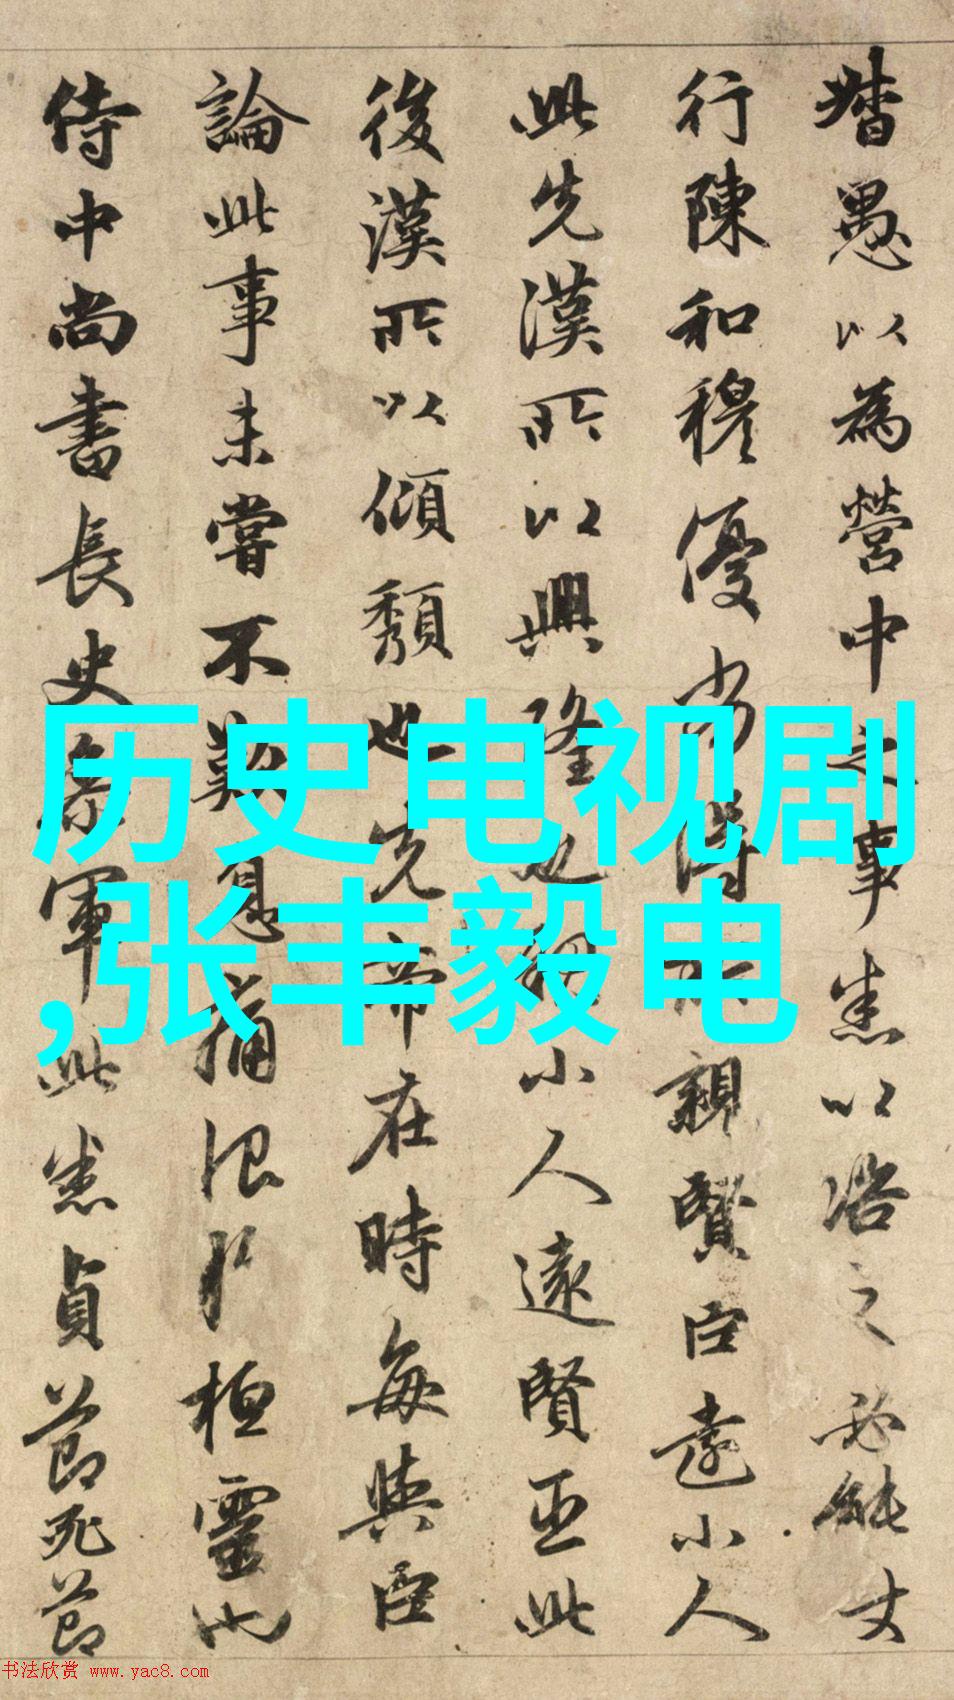 督愚以為營中之事悉以咨之必能丈
行陳和穆優劣得所親賢臣遠小人
此先漢所以興隆也親小人遠賢臣此
後漢所以傾頹也先帝在時每與臣
論此事未嘗不歎息痛恨於桓靈也
侍中尚書長史參軍此悉貞節死節
历史电视剧
,张丰毅电
书法欣赏 www.yac8.com